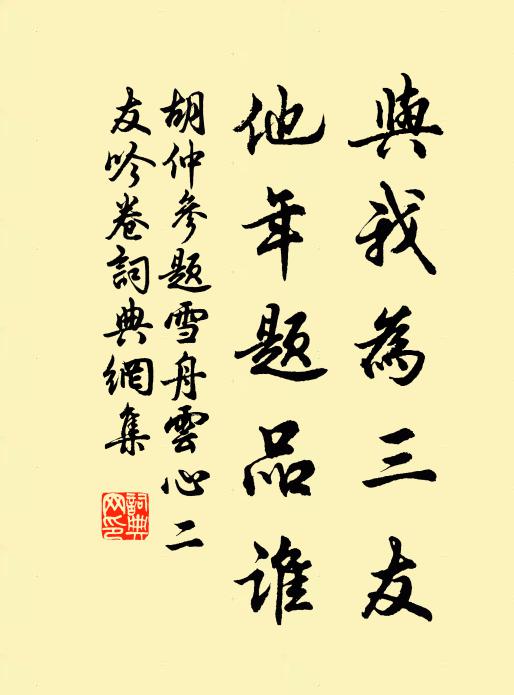 與我為三友
他年題品誰
胡仲參題雪舟雲心二
友吟卷詞典網集
詞典網印